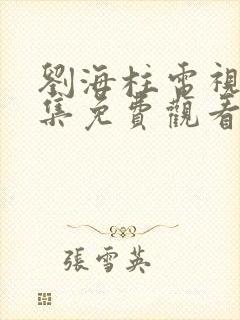 劉海柱電視
集免費觀看
張雪英